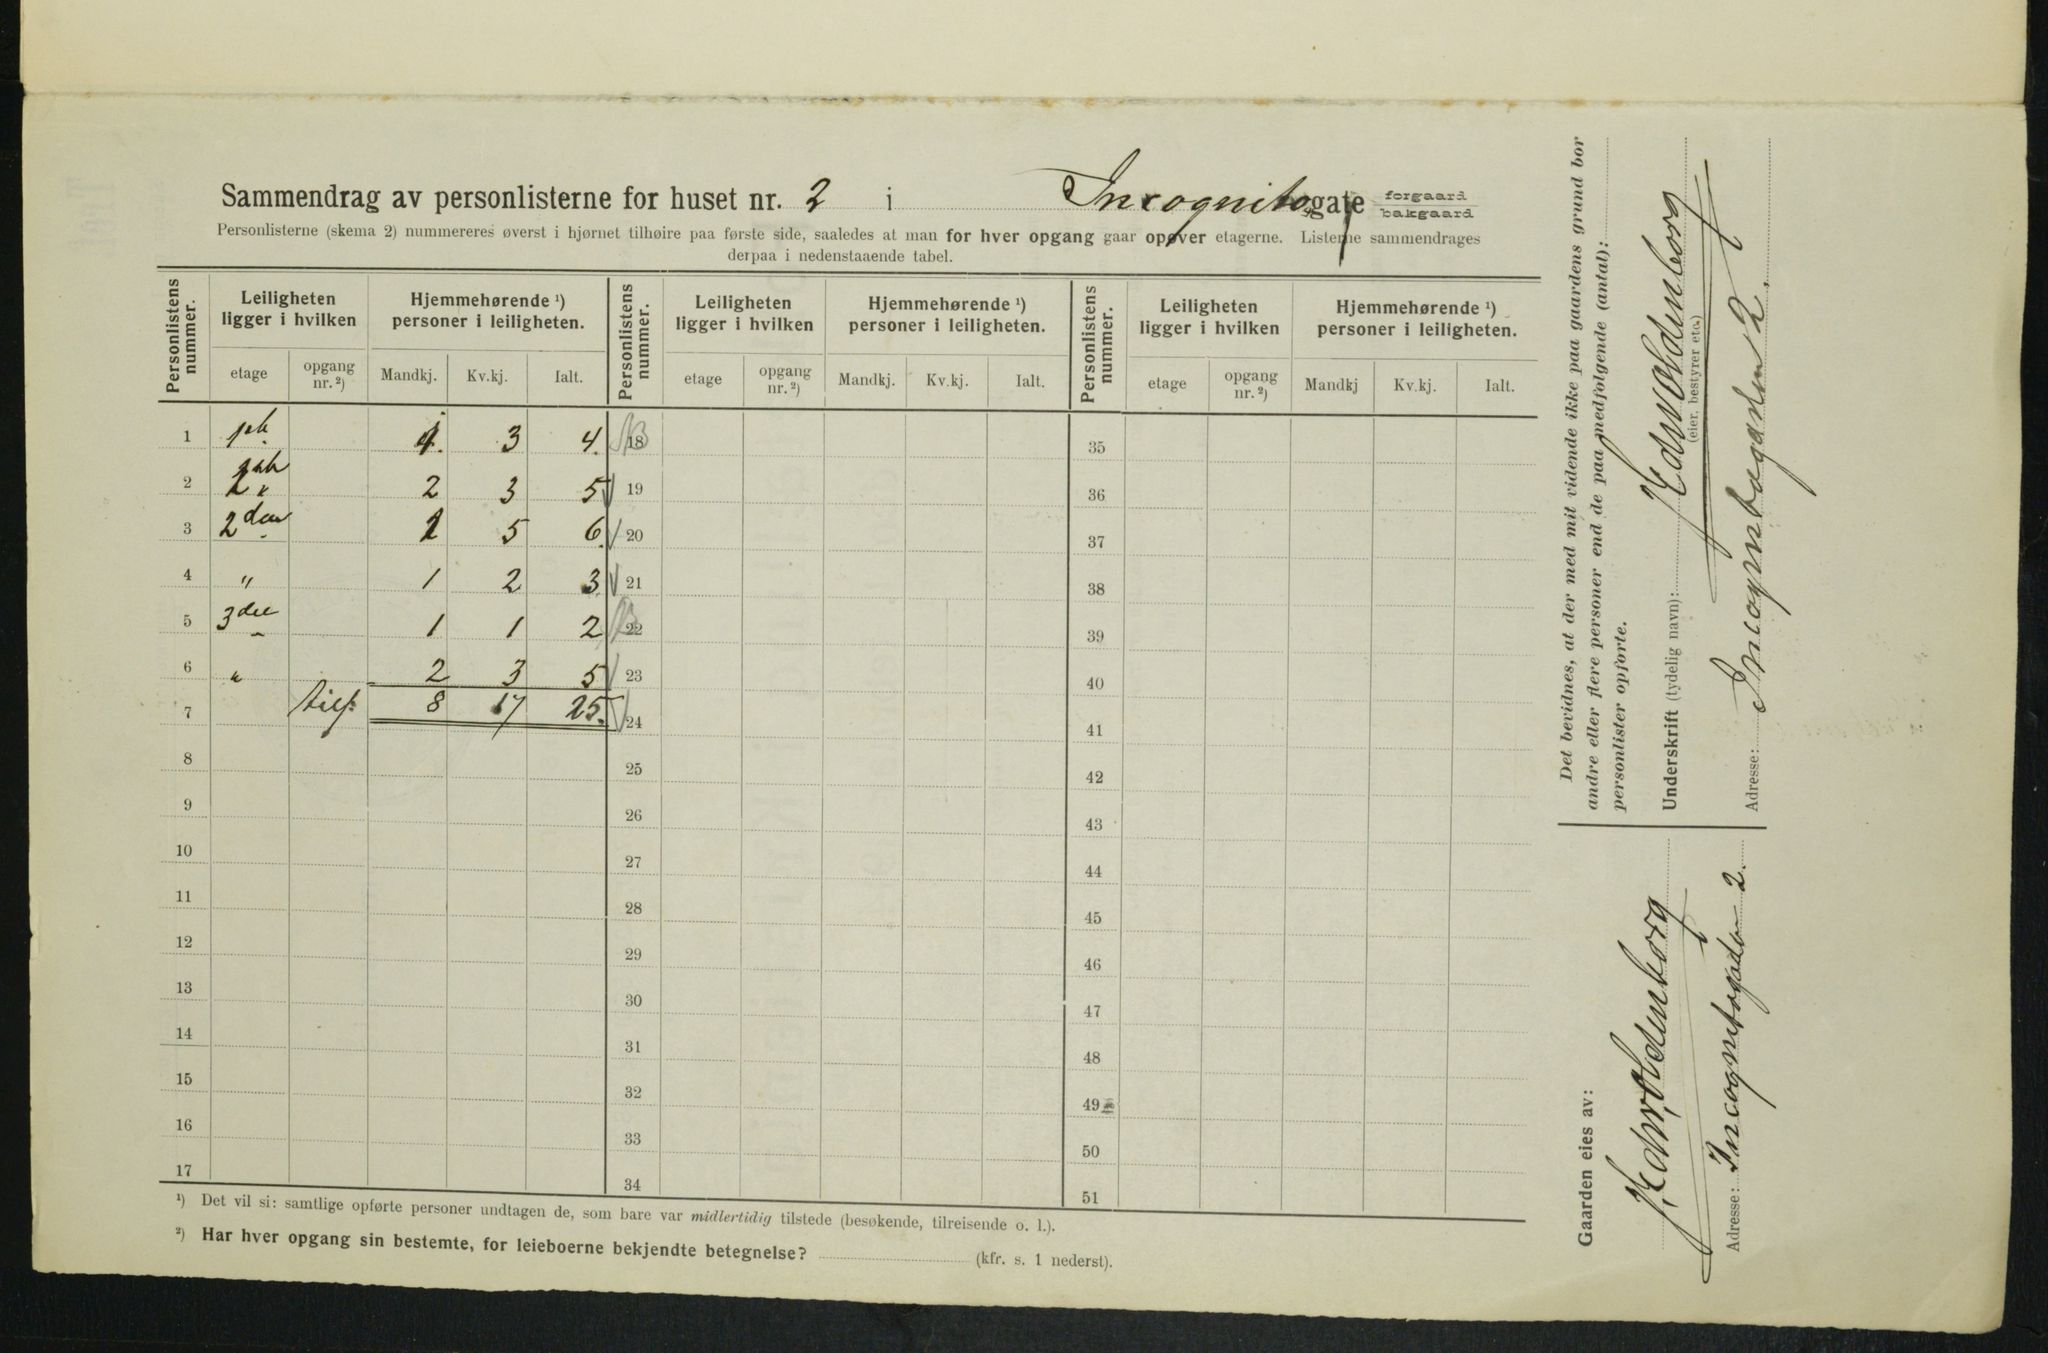 Sammendrag av personlisterne for huset nr. 2 i Incognitogate forgaard bakgaard
Personlisterne (skema 2) nummereres øverst i hjørnet tilhøire paa første side, saaledes at man for hver opgang gaar opover etagerne. Listerne sammendrages
derpaa i nedenstaaende tabel.
Personlistens nummer. Leiligheten ligger i hvilken Hjemmehørende ¹) personer i leiligheten. Personlistens nummer. Leiligheten ligger i hvilken Hjemmehørende ¹) personer i leiligheten. Personlistens nummer. Leiligheten ligger i hvilken Hjemmehørende ¹) personer i leiligheten.
etage opgang nr. ²) Mandkj. Kv.kj. Ialt. etage opgang nr. ²) Mandkj. Kv.kj. Ialt. etage opgang nr. ²) Mandkj Kv.kj. Ialt.
1 3 4. 18 35
2 2 3 5 19 36
3 2den 1 5 6. 20 37
4 " 1 2 3 21 38
5 3die 1 1 2 22 39
6 " 2 3 5 23 40
7 8 17 25. 24 41
8 25 42
9 26 43
10 27 44
11 28 45
12 29 46
13 30 47
14 31 48
15 32 49
16 33 50
17 34 51
¹) Det vil si: samtlige opførte personer undtagen de, som bare var midlertidig tilstede (besøkende, tilreisende o. l.).
²) Har hver opgang sin bestemte, for leieboerne bekjendte betegnelse? (kfr. s. 1 nederst).
Det bevidnes, at der med mit vidende ikke paa gaardens grund bor
andre eller flere personer end de paa medfølgende (antal):
personlister opførte.
Underskrift (tydelig navn): Edw. Oldenborg
(eier, bestyrer etc.)
Adresse: Incognitogaden 2.
Gaarden eies av:
Edw. Oldenborg
Adresse: Incognitogaden 2.